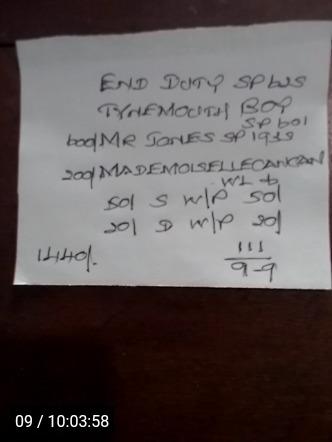 END DUTY SP bus
TYNEMOUTH BOY
SP bol
600/ MR JONES SP 1933
200/ MADEMOISELLECANCAN
WL b
50/ S W/P 50/
20/ D W/P 20/
1440/.
111
9-9
09 / 10:03:58